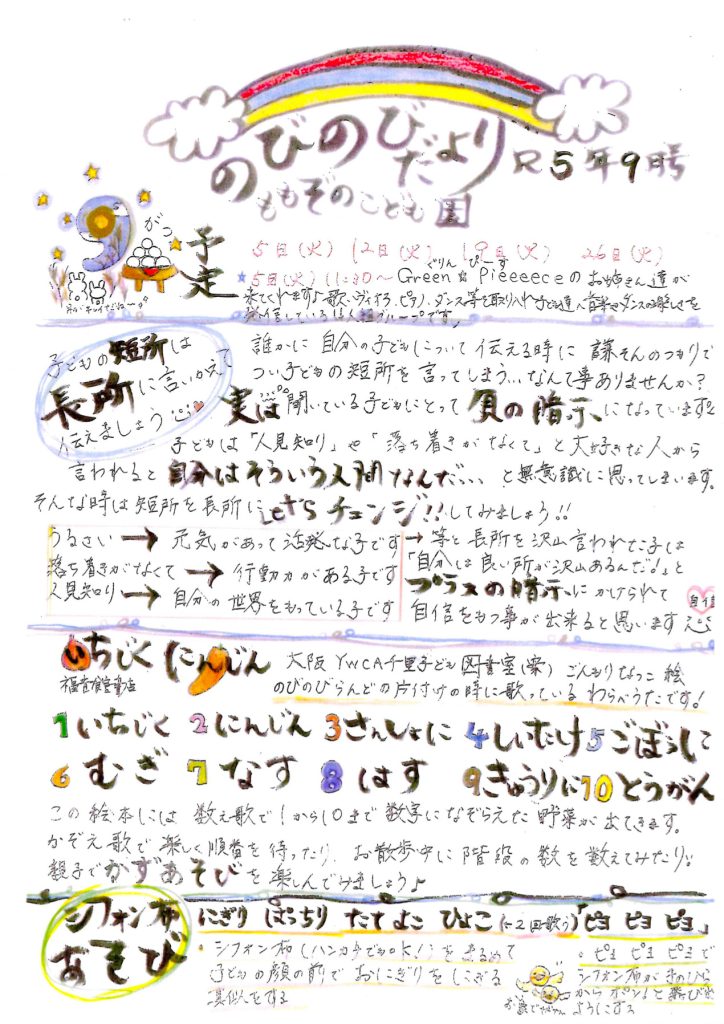 のびのびだより R5年9月号
ももぞのこども園
9がつ 予定
5日(火) 12日(火) 19日(火) 26日(火)
5日(火) 11:30〜 Green☆Pieeeeceのお姉さん達が
ぐりん ぴーす
来てくれます♪歌、ヴァイオリン、ピアノ、ダンス等を取り入れ子ども達へ音楽やダンスの楽しさを
発信している グループです。
子どもの短所は
長所に言いかえて
伝えましょう
誰かに自分の子どもについて伝える時に謙そんのつもりで
つい子どもの短所を言ってしまう…なんて事ありませんか?
実は聞いている子どもにとって負の暗示になっています
子どもは「人見知り」や「落ち着きがなくて」と大好きな人から
言われると自分はそういう人間なんだ… と無意識に思ってしまいます。
そんな時は短所を長所にLet'sチェンジ!!してみましょう!!
うるさい → 元気があって活発な子です
落ち着きがなくて → 行動力がある子です
人見知り → 自分の世界をもっている子です
→ 等と長所を沢山言われた子は
「自分は良い所が沢山あるんだ!」と
プラスの暗示にかけられて
自信をもつ事が出来ると思います
自信
いちじくにんじん
福音館書店
大阪YWCA千里子ども図書室(案) ごんもりなつこ 絵
のびのびらんどの片付けの時に歌っているわらべうたです!
1いちじく 2にんじん 3さんしょに 4しいたけ 5ごぼうに
6むぎ 7なす 8はす 9きゅうりに 10とうがん
この絵本には数え歌で1から10まで数字になぞらえた野菜が出てきます。
かぞえ歌で楽しく順番を待ったり、お散歩中に階段の数を数えてみたり!!
親子でかずあそびを楽しんでみましょう♪
シフォン布
あそび
にぎり ぱっちり たてよこ ひよこ (1~2回歌う)「ピヨ ピヨ ピヨ」
・シフォン布(ハンカチでもOK!)をまるめて
子どもの顔の前でおにぎりをにぎる
真似をする
・ピヨ ピヨ ピヨで
シフォン布が手のひら
からポン!と飛び出
ようにする